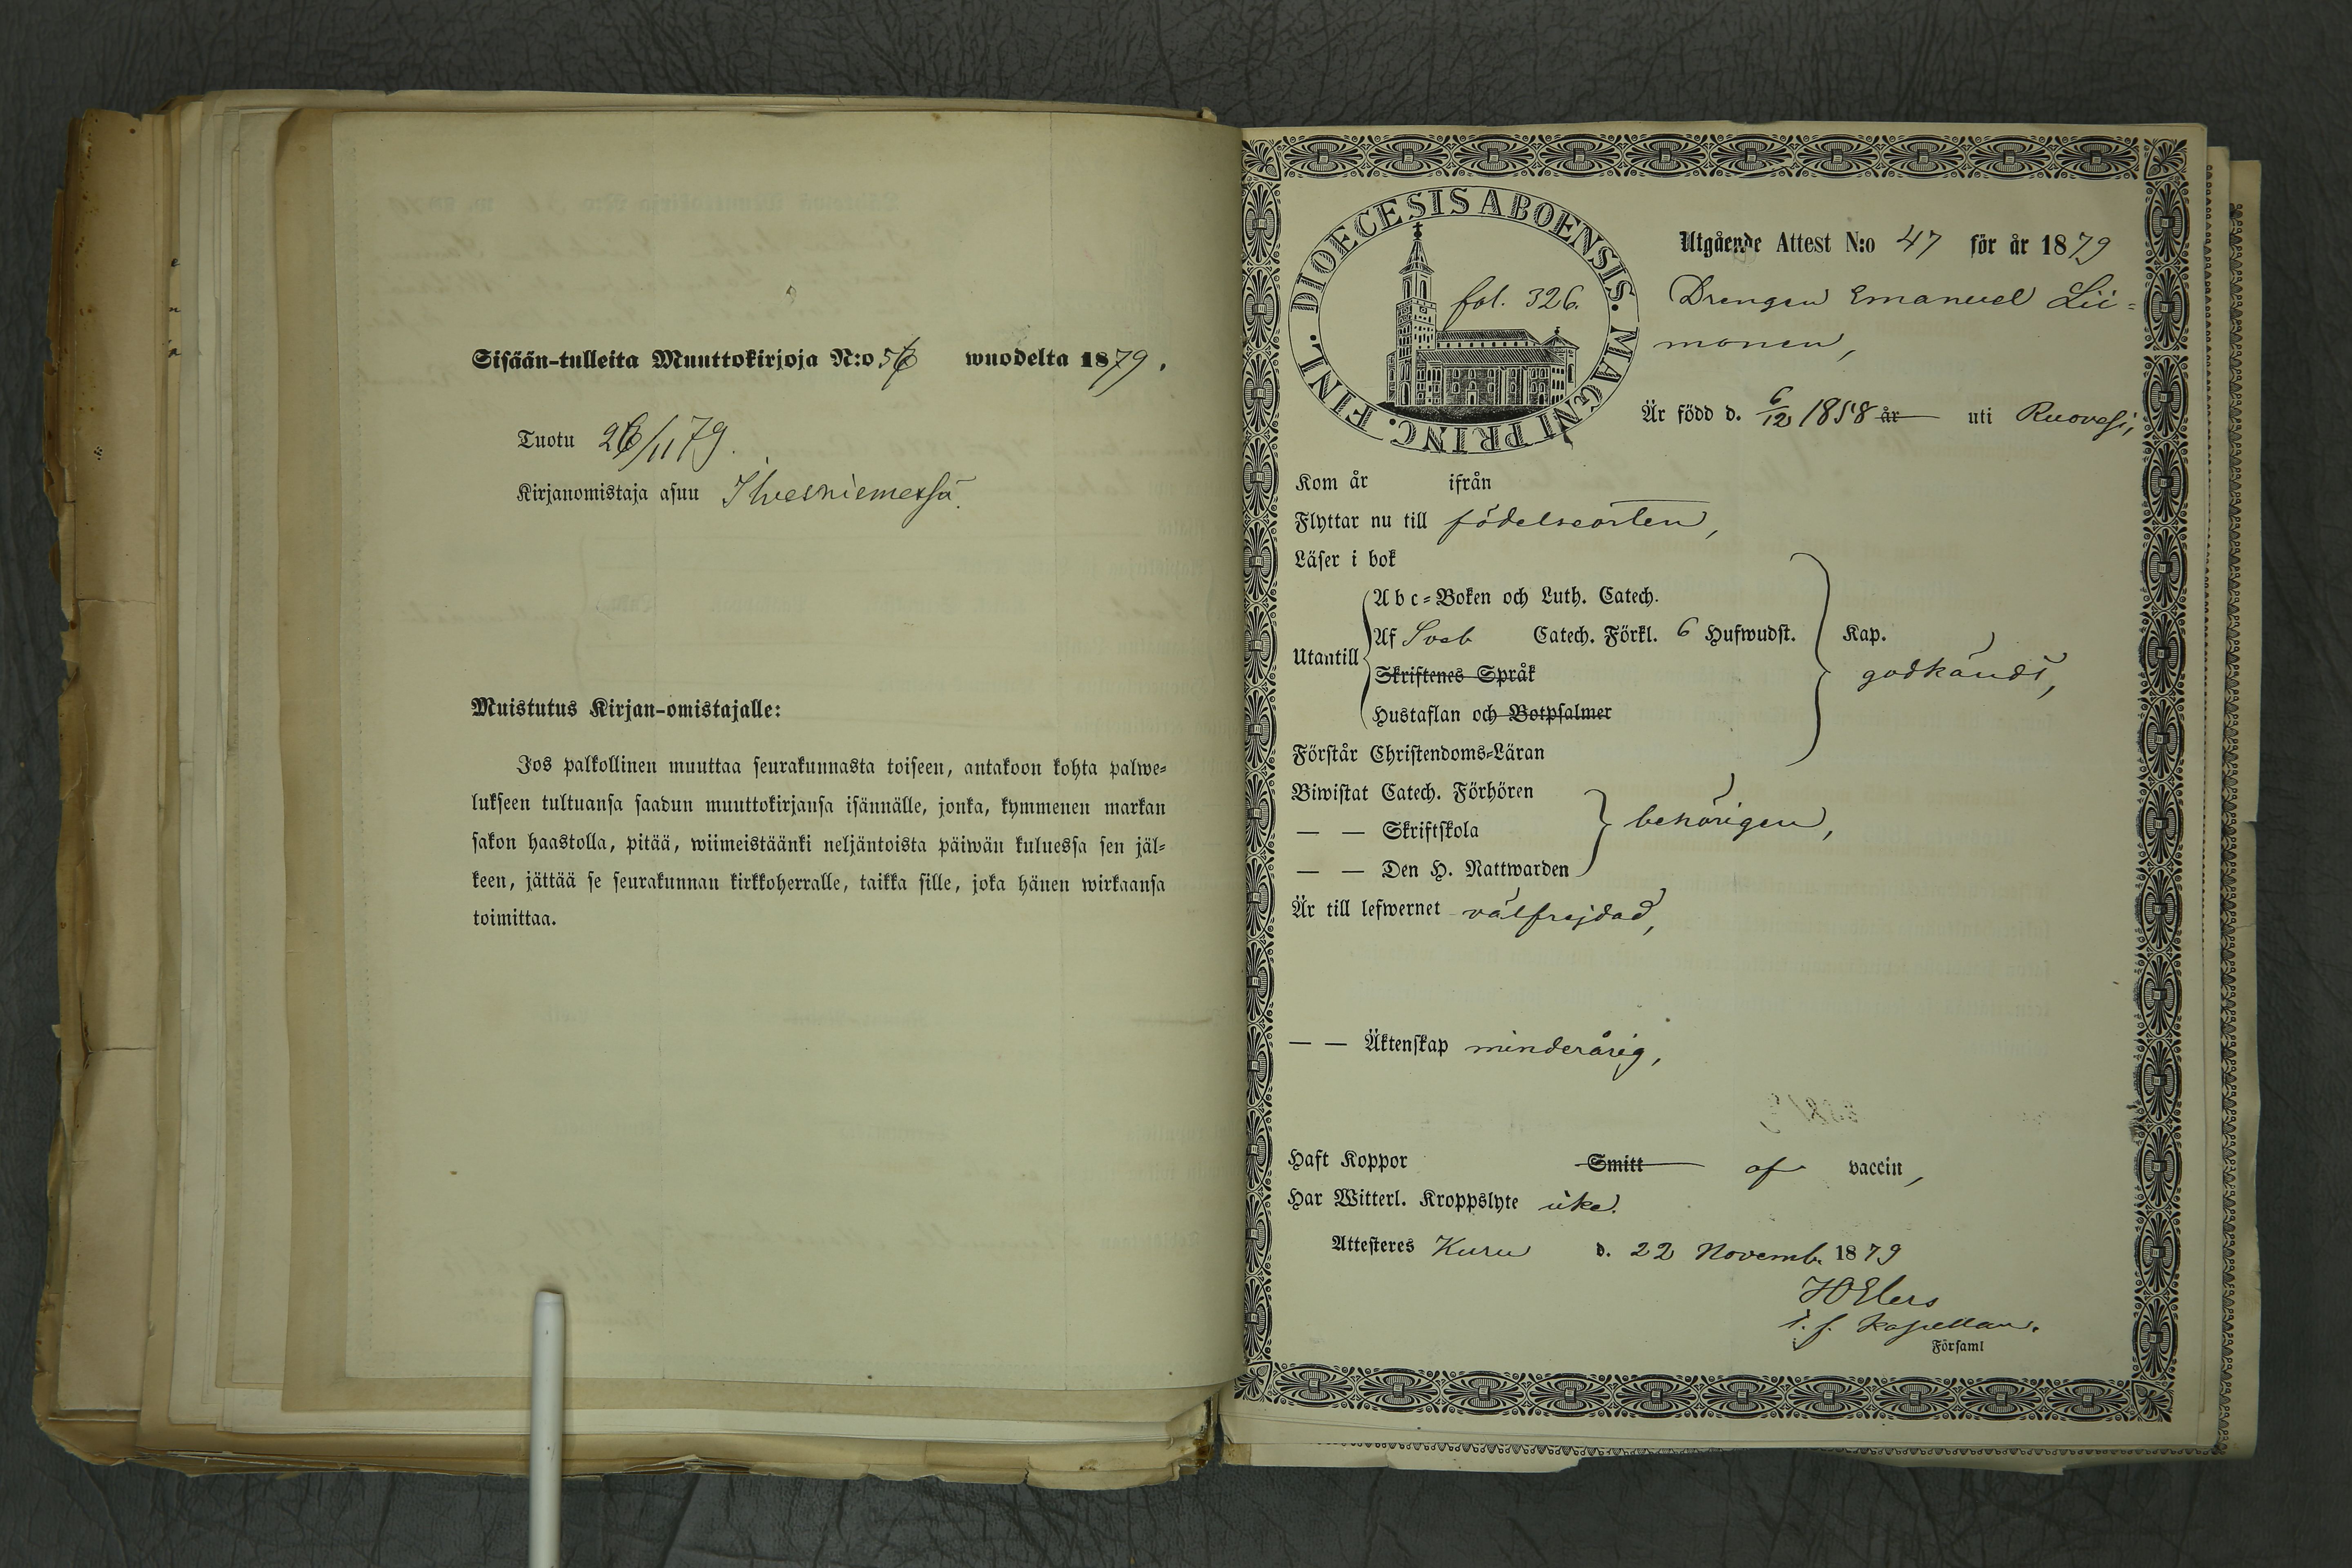 Sisään-tulleita Muuttokirjoja N:o 56 wuodelta 1879.
Tuotu 26/11 79.
Kirjanomistaja asuu Ilvesniemessä.
Muistutus Kirjan-omistajalle:
Jos palkollinen muuttaa seurakunnasta toiseen, antakoon kohta palwe-
lukseen tultuansa saadun muuttokirjansa isännälle, jonka, kymmenen markan
sakon haastolla, pitää, wiimeistäänki neljäntoista päiwän kuluessa sen jäl-
keen, jättää se seurakunnan kirkkoherralle, taikka sille, joka hänen wirkaansa
toimittaa.
DIOECESIS ABOENSIS. MAGNI PRINC. FINL.
fol. 326.
Utgående Attest N:o 47 för år 1879
Drengen Emanuel Lii-
monen,
Är född d. 6/12 1858 år uti Ruovesi,
Kom år ifrån
Flyttar nu till födelseorten,
Läser i bok
Utantill
Abc-Boken och Luth. Catech.
Af Sveb Catech. Förkl. 6 Hufwudst. Kap.
Skriftenes Språk
godkändt,
Hustaflan och Botpsalmer
Förstår Christendoms-Läran
Biwistat Catech. Förhören
— — Skriftskola
behörigen,
— — Den H. Nattwarden
Är till lefwernet välfrejdad,
— — Äktenskap minderårig,
Haft Koppor Smitt af vaccin,
Har Witterl. Kroppslyte icke.
Attesteres Kuru d. 22 Novemb. 1879
HElers
i. f. Kapellan.
i Församl